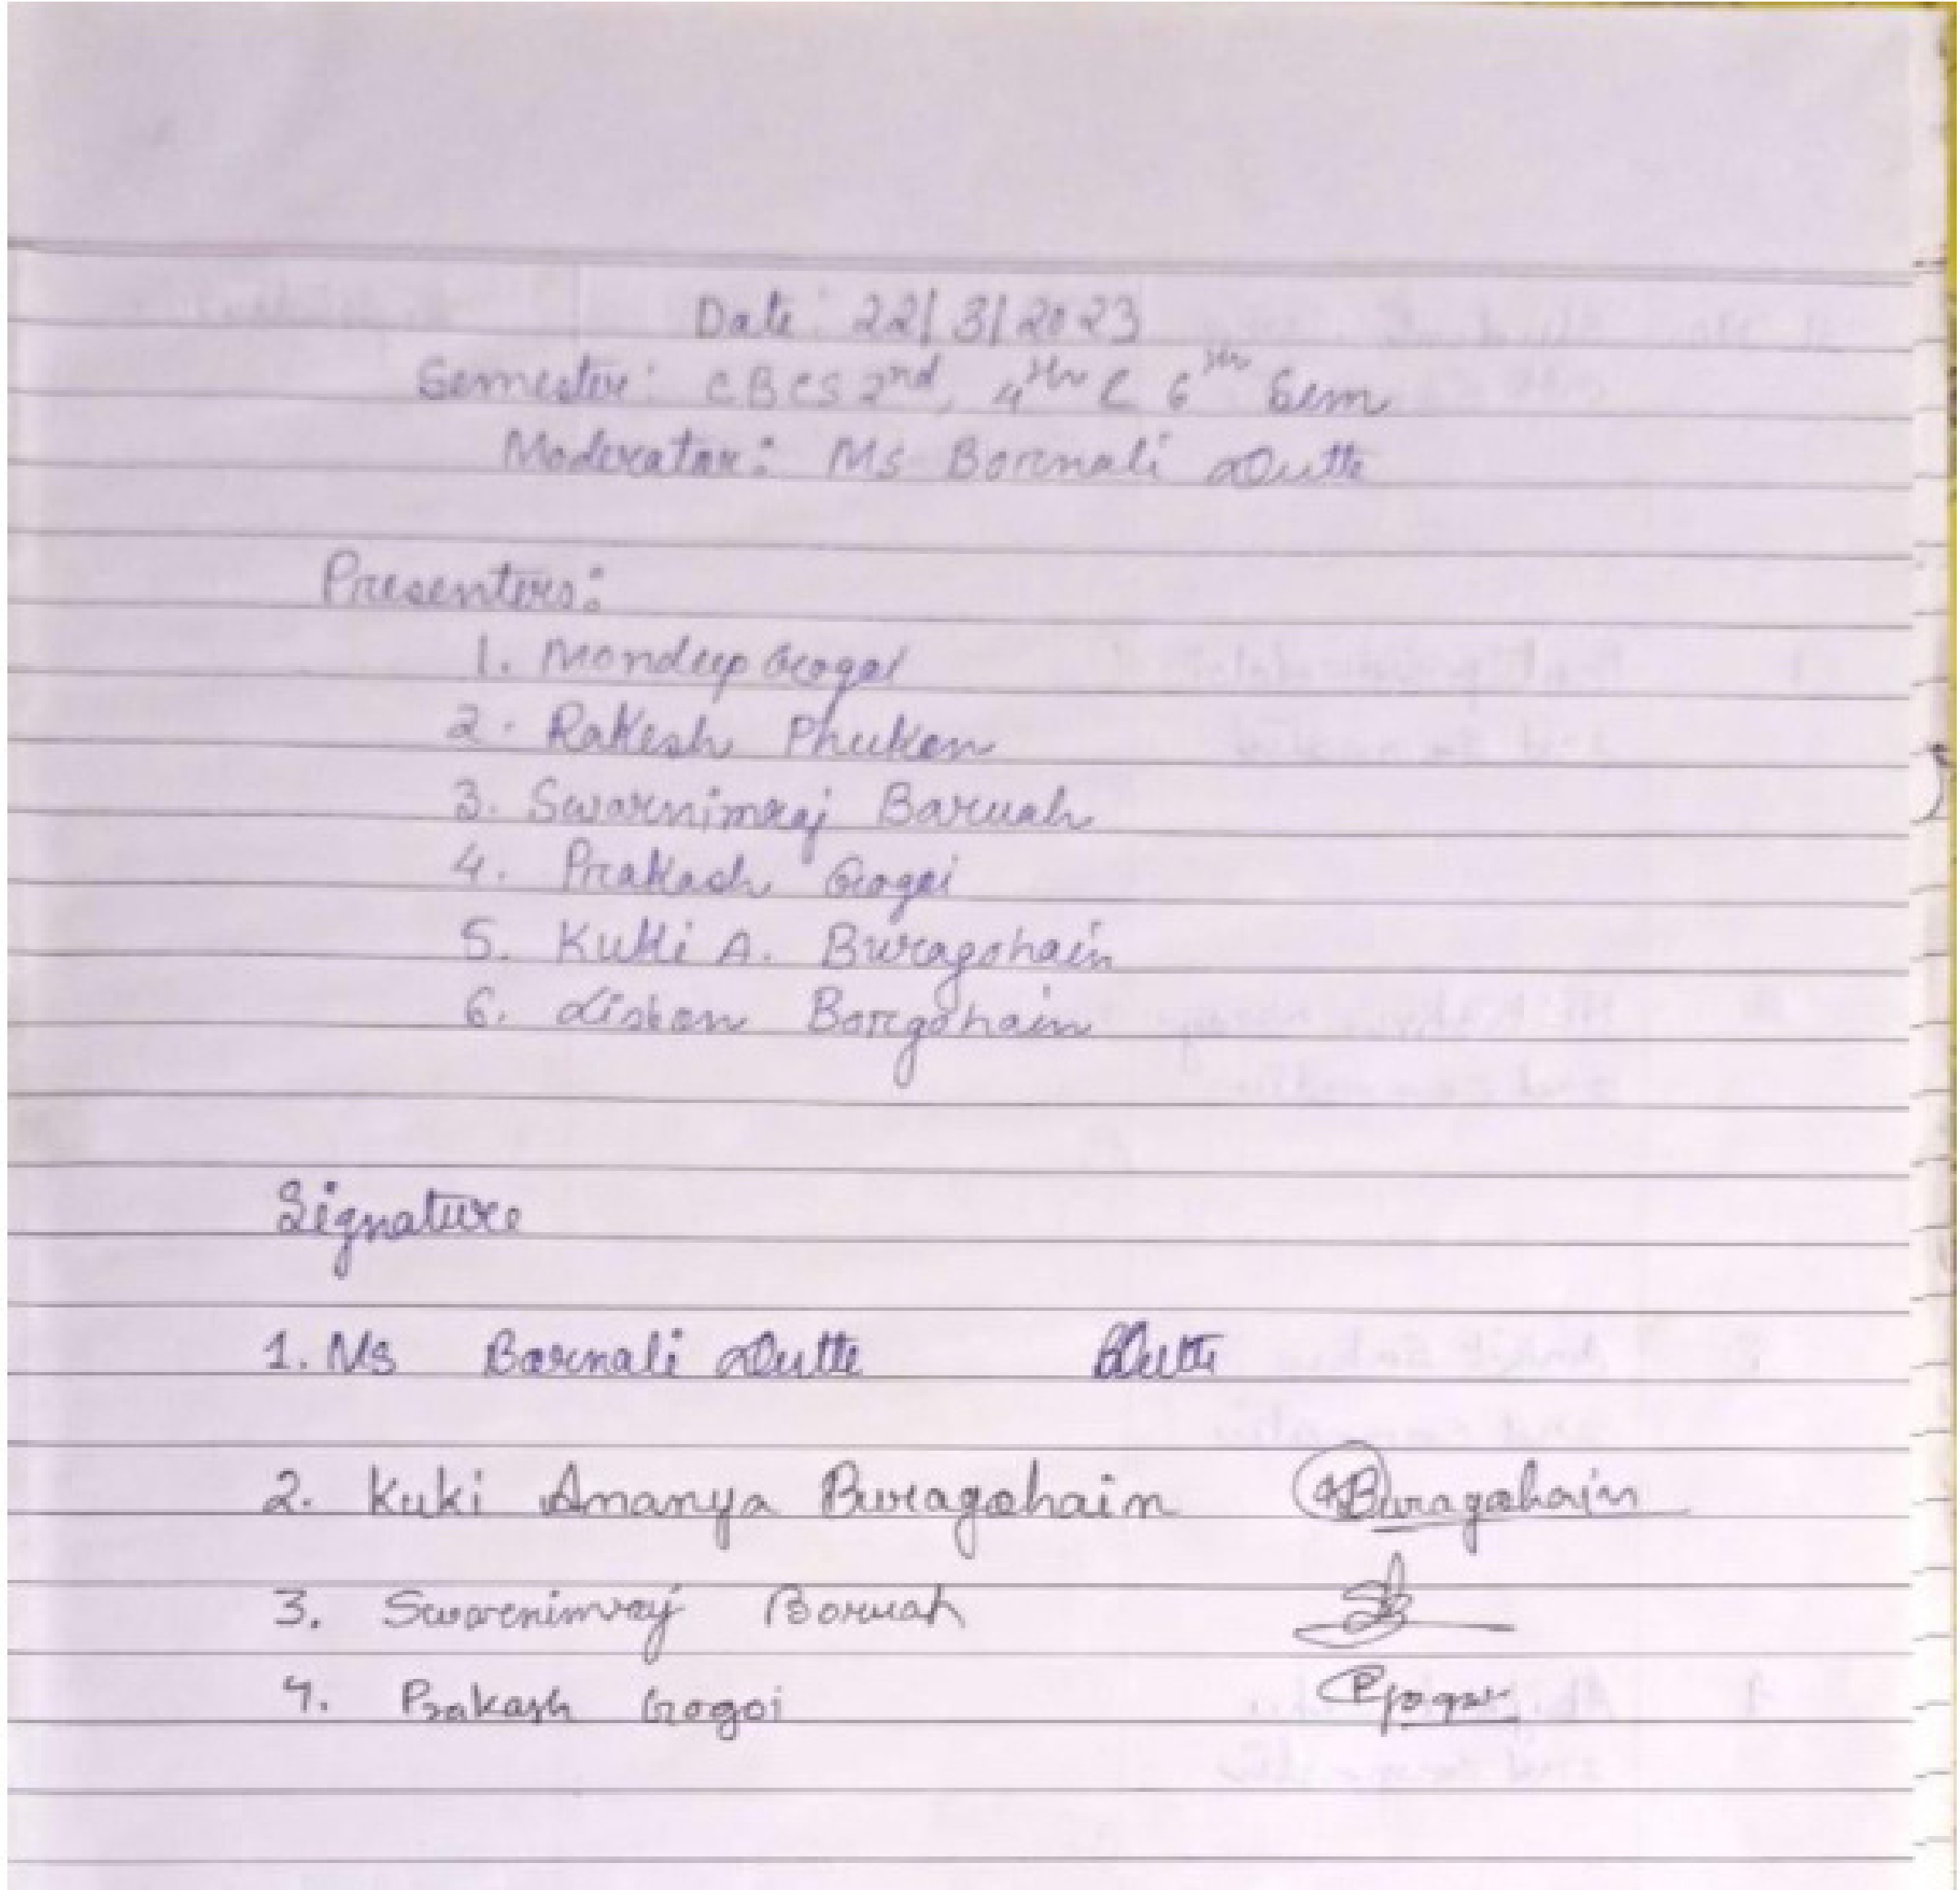 Date: 22/3/2023
Semester: CBCS 2nd, 4th & 6th Sem
Moderator: Ms Bornali Dutta
Presenters:
1. Mondeep Gogoi
2. Rakesh Phukan
3. Swarnimraj Baruah
4. Prakash Gogoi
5. Kuki A. Buragohain
6. Liston Borgohain
Signature
1. Ms Barnali Dutta BDutta
2. Kuki Ananya Buragohain Buragohain
3. Swarnimraj Boruah
4. Prakash Gogoi